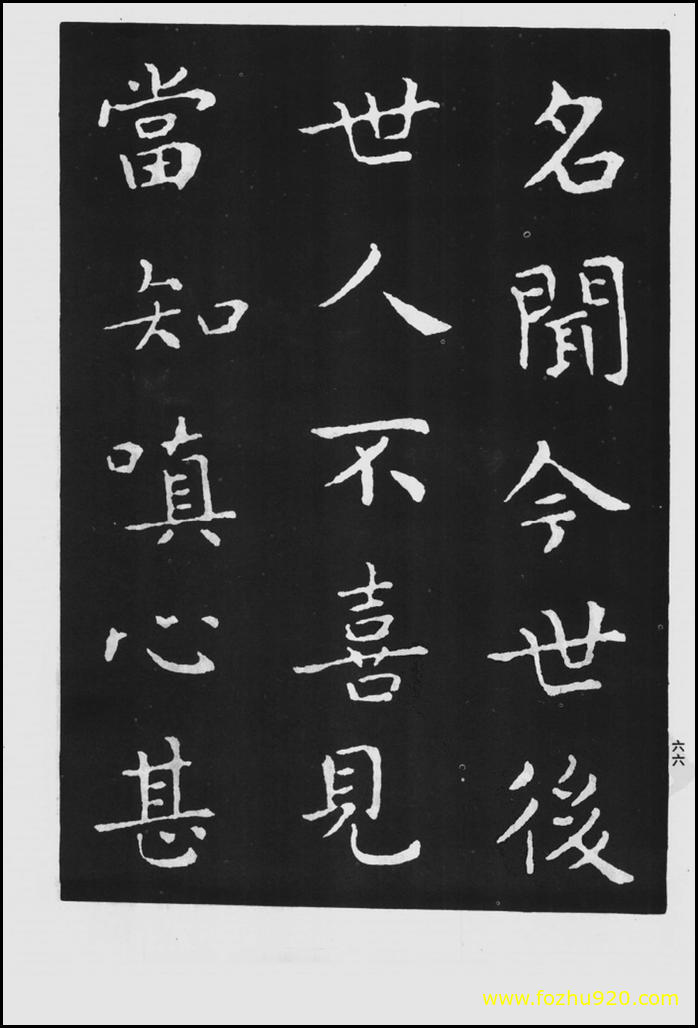 名聞今世後
世人不喜見
當知嗔心甚
六六
www.fozhu920.com